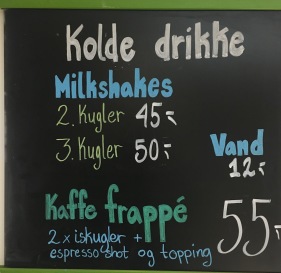 Kolde drikke
Milkshakes
2. Kugler 45,-
3. Kugler 50,-
Vand
12,-
Kaffe frappé 55,-
2 x iskugler +
espresso shot og topping